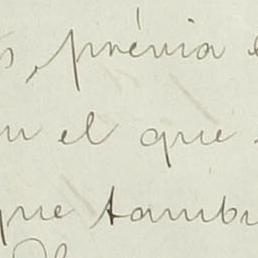 , prévia
el que
que tambi